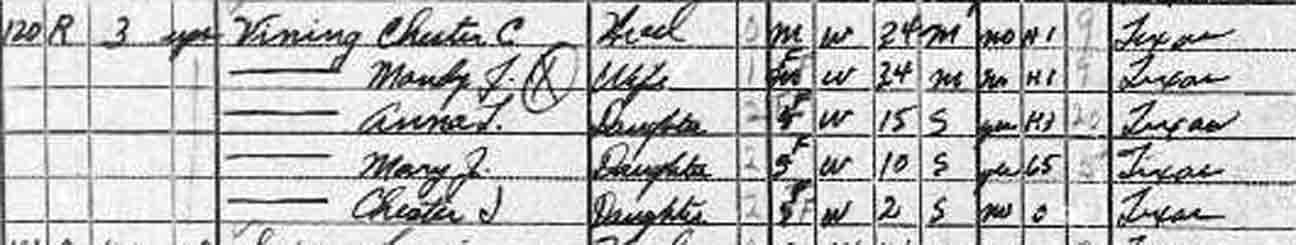 120 R 3 yes Vining Chester C Head 0 M W 34 M no H1 9 Texas
Mandy F. X Wife 1 F W 34 M no H1 9 Texas
Anna F. Daughter 2 F W 15 S yes H3 20 Texas
Mary J. Daughter 2 F W 10 S yes 65 5 Texas
Chester I Daughter 2 F W 2 S no 0 Texas